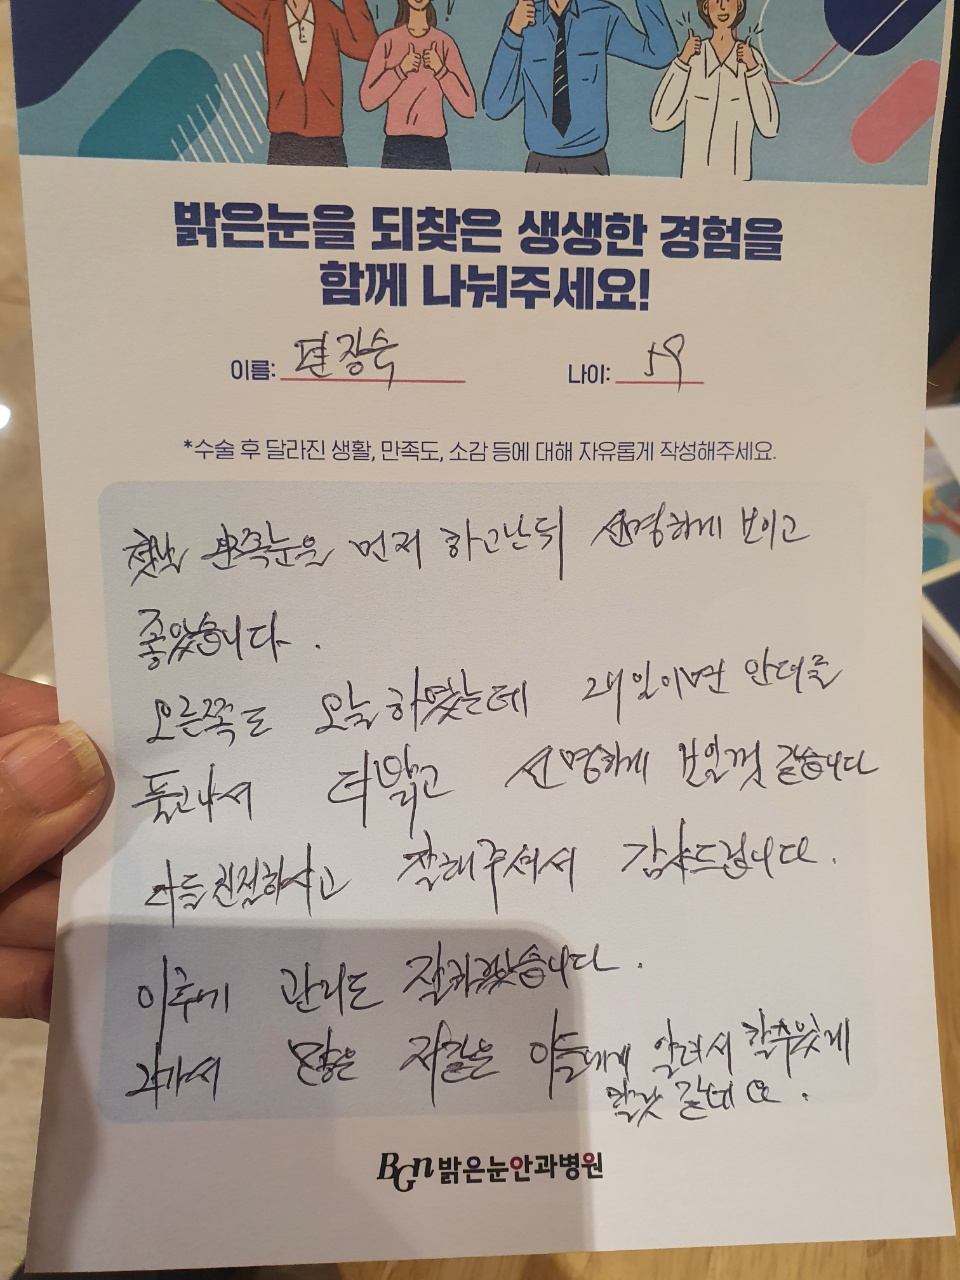 밝은눈을 되찾은 생생한 경험을
함께 나눠주세요!
이름: 편장숙 나이: 59
*수술 후 달라진 생활, 만족도, 소감 등에 대해 자유롭게 작성해주세요.
첫날 왼쪽눈을 먼저 하고난뒤 선명하게 보이고
좋았습니다.
오른쪽도 오늘 하였는데 내일이면 안대를
풀고나서 더밝고 선명하게 보일것 같습니다
다들 친절하시고 잘해주셔서 감사드립니다.
이후에 관리도 잘하겠습니다.
가서 많은 저같은 이들에게 알려서 할수있게
말할것 같네요.
BGn 밝은눈안과병원